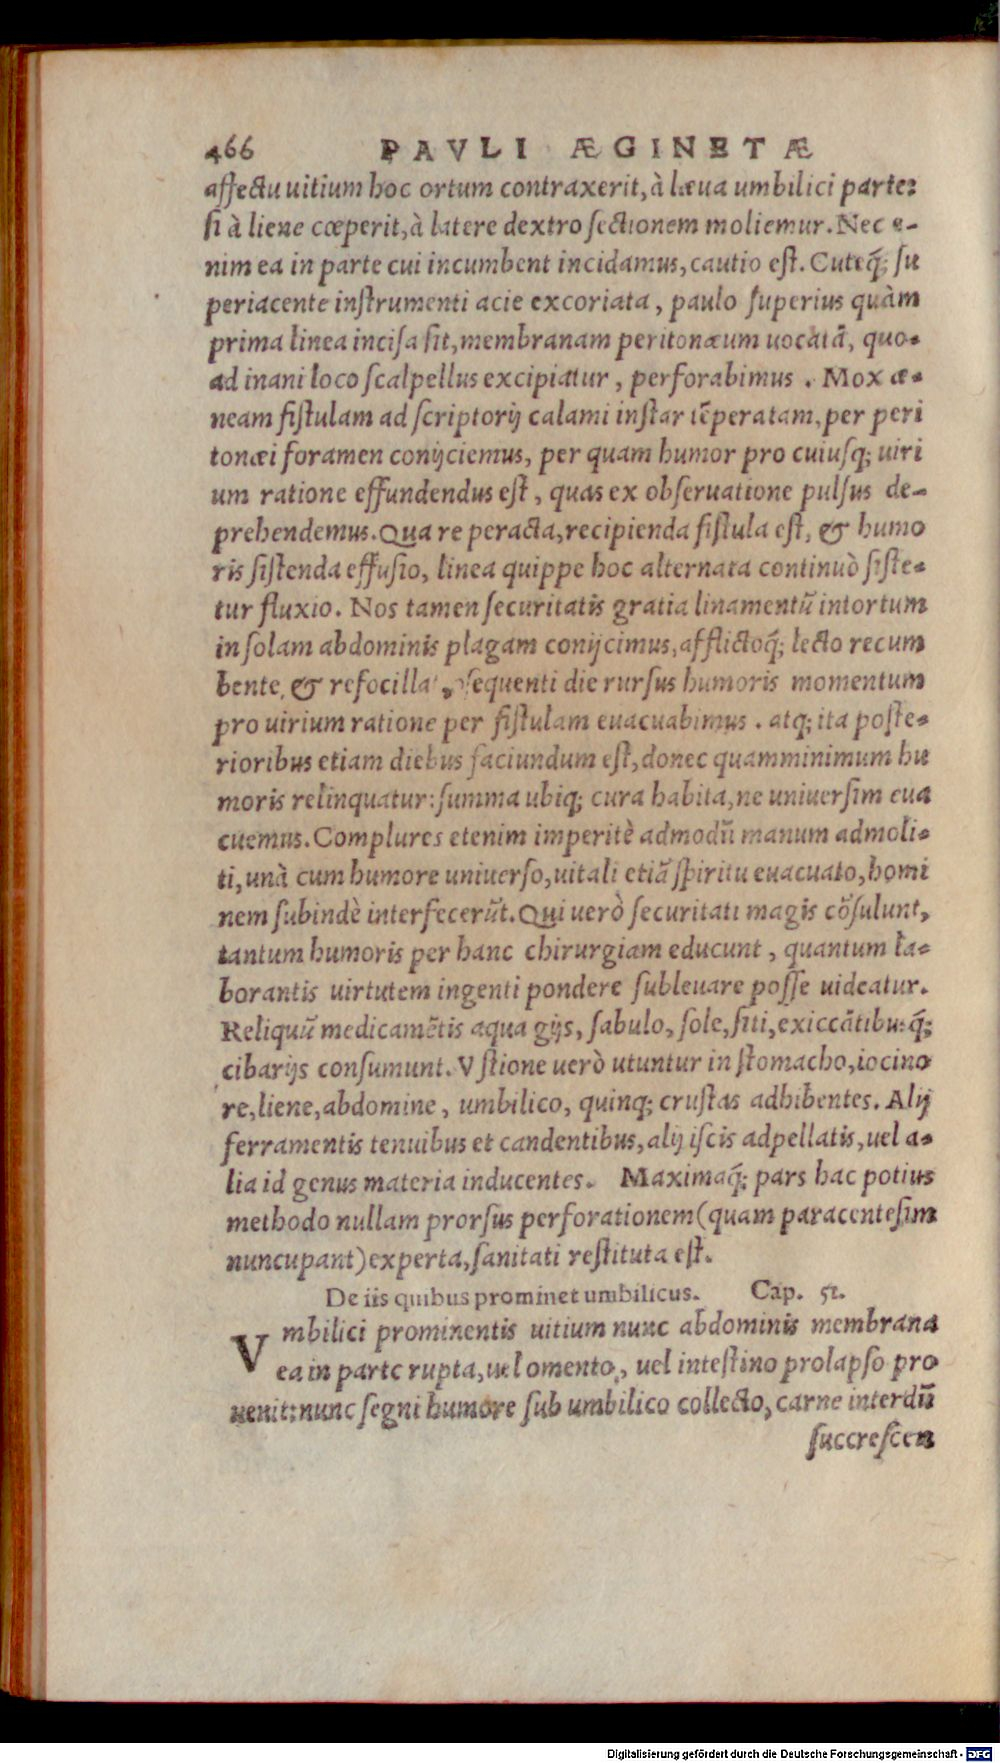 466 PAVLI ÆGINETÆ
affectu uitium hoc ortum contraxerit, à læua umbilici parte:
si à liene cœperit, à latere dextro sectionem moliemur. Nec e-
nim ea in parte cui incumbent incidamus, cautio est. Cuteq́; su
periacente instrumenti acie excoriata, paulo superius quàm
prima linea incisa sit, membranam peritonæum uocatā, quo-
ad inani loco scalpellus excipiatur, perforabimus. Mox æ-
neam fistulam ad scriptorij calami instar tēperatam, per peri
tonæi foramen conijciemus, per quam humor pro cuiusq; uiri
um ratione effundendus est, quas ex obseruatione pulsus de-
prehendemus. Qua re peracta, recipienda fistula est, & humo
ris sistenda effusio, linea quippe hoc alternata continuò siste-
tur fluxio. Nos tamen securitatis gratia linamentū intortum
in solam abdominis plagam conijcimus, afflictoq́; lecto recum
bente, & sequenti die rursus humoris momentum
pro uirium ratione per fistulam euacuabimus. atq; ita poste-
rioribus etiam diebus faciundum est, donec quamminimum hu
moris relinquatur: summa ubiq; cura habita, ne uniuersim eua
cuemus. Complures etenim imperitè admodū manum admoli-
ti, unà cum humore uniuerso, uitali etiā spiritu euacuato, homi
nem subindè interfecerūt. Qui uerò securitati magis cōsulunt,
tantum humoris per hanc chirurgiam educunt, quantum la-
borantis uirtutem ingenti pondere subleuare posse uideatur.
Reliquū medicamētis aqua gijs, sabulo, sole, siti, exiccātibusq́;
cibarijs consumunt. Vstione uerò utuntur in stomacho, iocino
re, liene, abdomine, umbilico, quinq; crustas adhibentes. Alij
ferramentis tenuibus et candentibus, alij iscis adpellatis, uel a-
lia id genus materia inducentes. Maximaq́; pars hac potius
methodo nullam prorsus perforationem (quam paracentesim
nuncupant) experta, sanitati restituta est.
De iis quibus prominet umbilicus. Cap. 51.
Vmbilici prominentis uitium nunc abdominis membrana
ea in parte rupta, uel omento, uel intestino prolapso pro
uenit: nunc segni humore sub umbilico collecto, carne interdū
succrescen
Digitalisierung gefördert durch die Deutsche Forschungsgemeinschaft - DFG